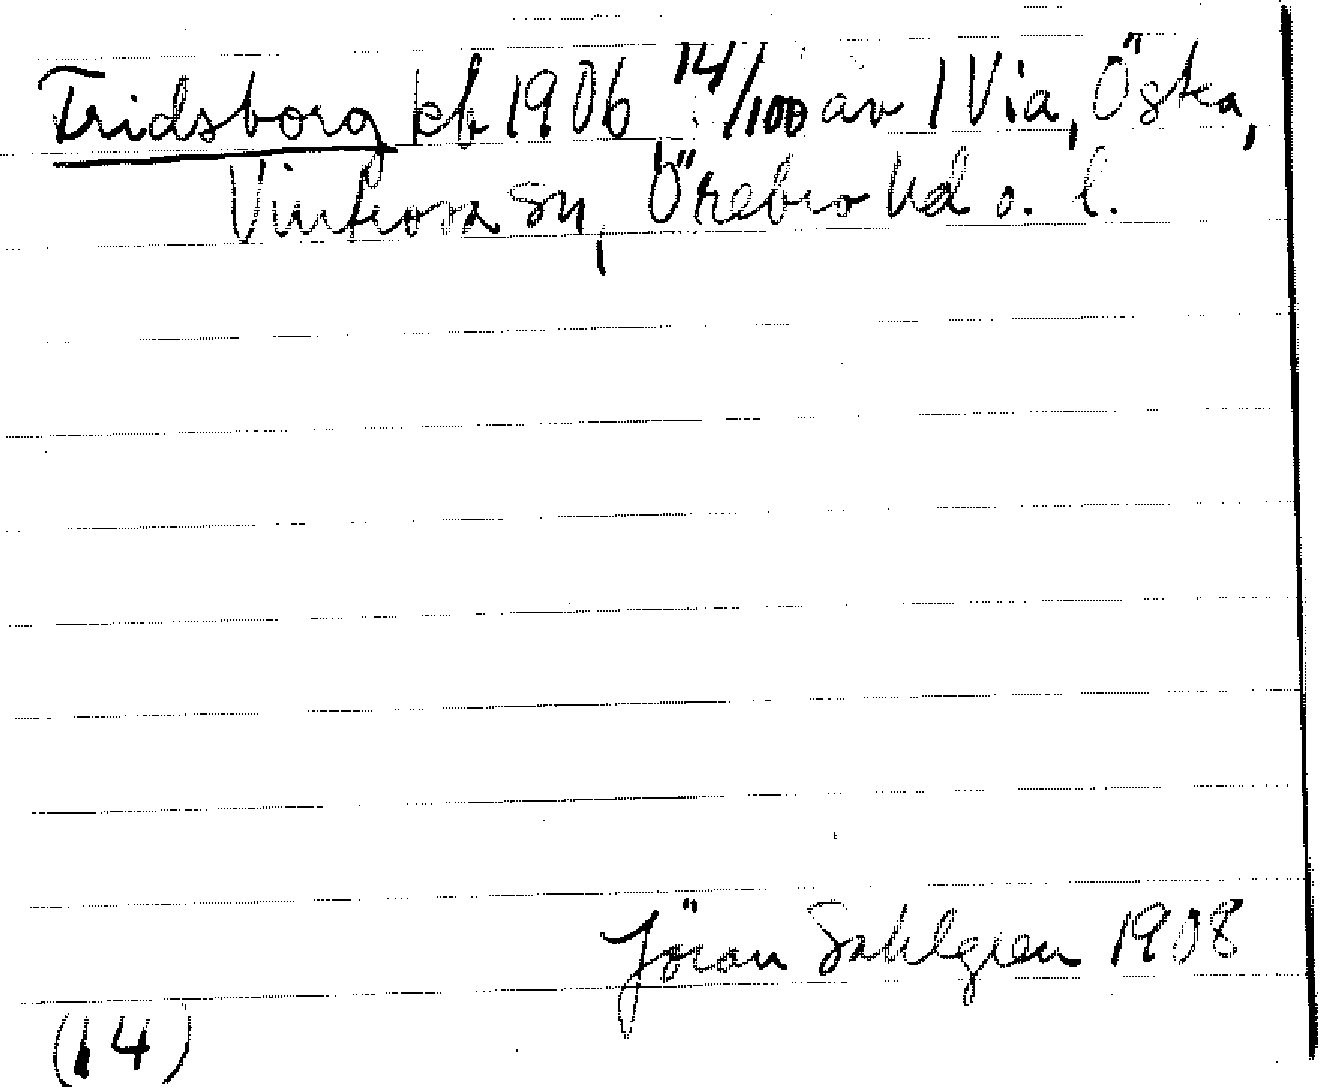 Fridsborg kb 1906 14/100 av 1 Via, Östra,
Vintrosa sn, Örebro hd o. l.
Jöran Sahlgren 1908
(14)